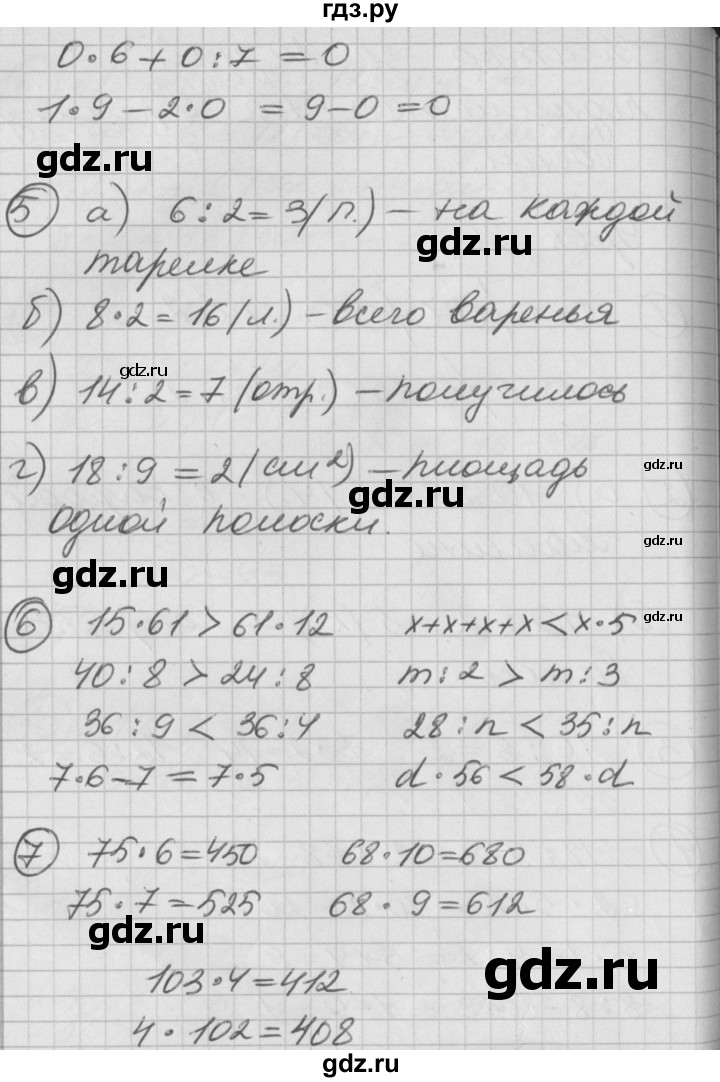 гдз.ру
0·6+0:7=0
1·9-2·0=9-0=0
gdz.ru
5 а) 6:2=3(п.) - на каждой
gdz.ru
тарелке
б) 8·2=16(л.) - всего варенья
gdz.ru
в) 14:2=7(отр.) - получилось
г) 18:9=2(см²) - площадь
gdz.ru
gdz.ru
одной полоски.
gdz.ru
gdz.ru
6 15·61>61·12 x+x+x+x<x·5
gdz.ru
40:8>24:8 m:2>m:3
36:9<36:4 28:n<35:n
7·6-7=7·5 d·56<58·d
7 75·6=450 68·10=680
75·7=525 68·9=612
gdz.ru
103·4=412
gdz.ru
4·102=408
gdz.ru